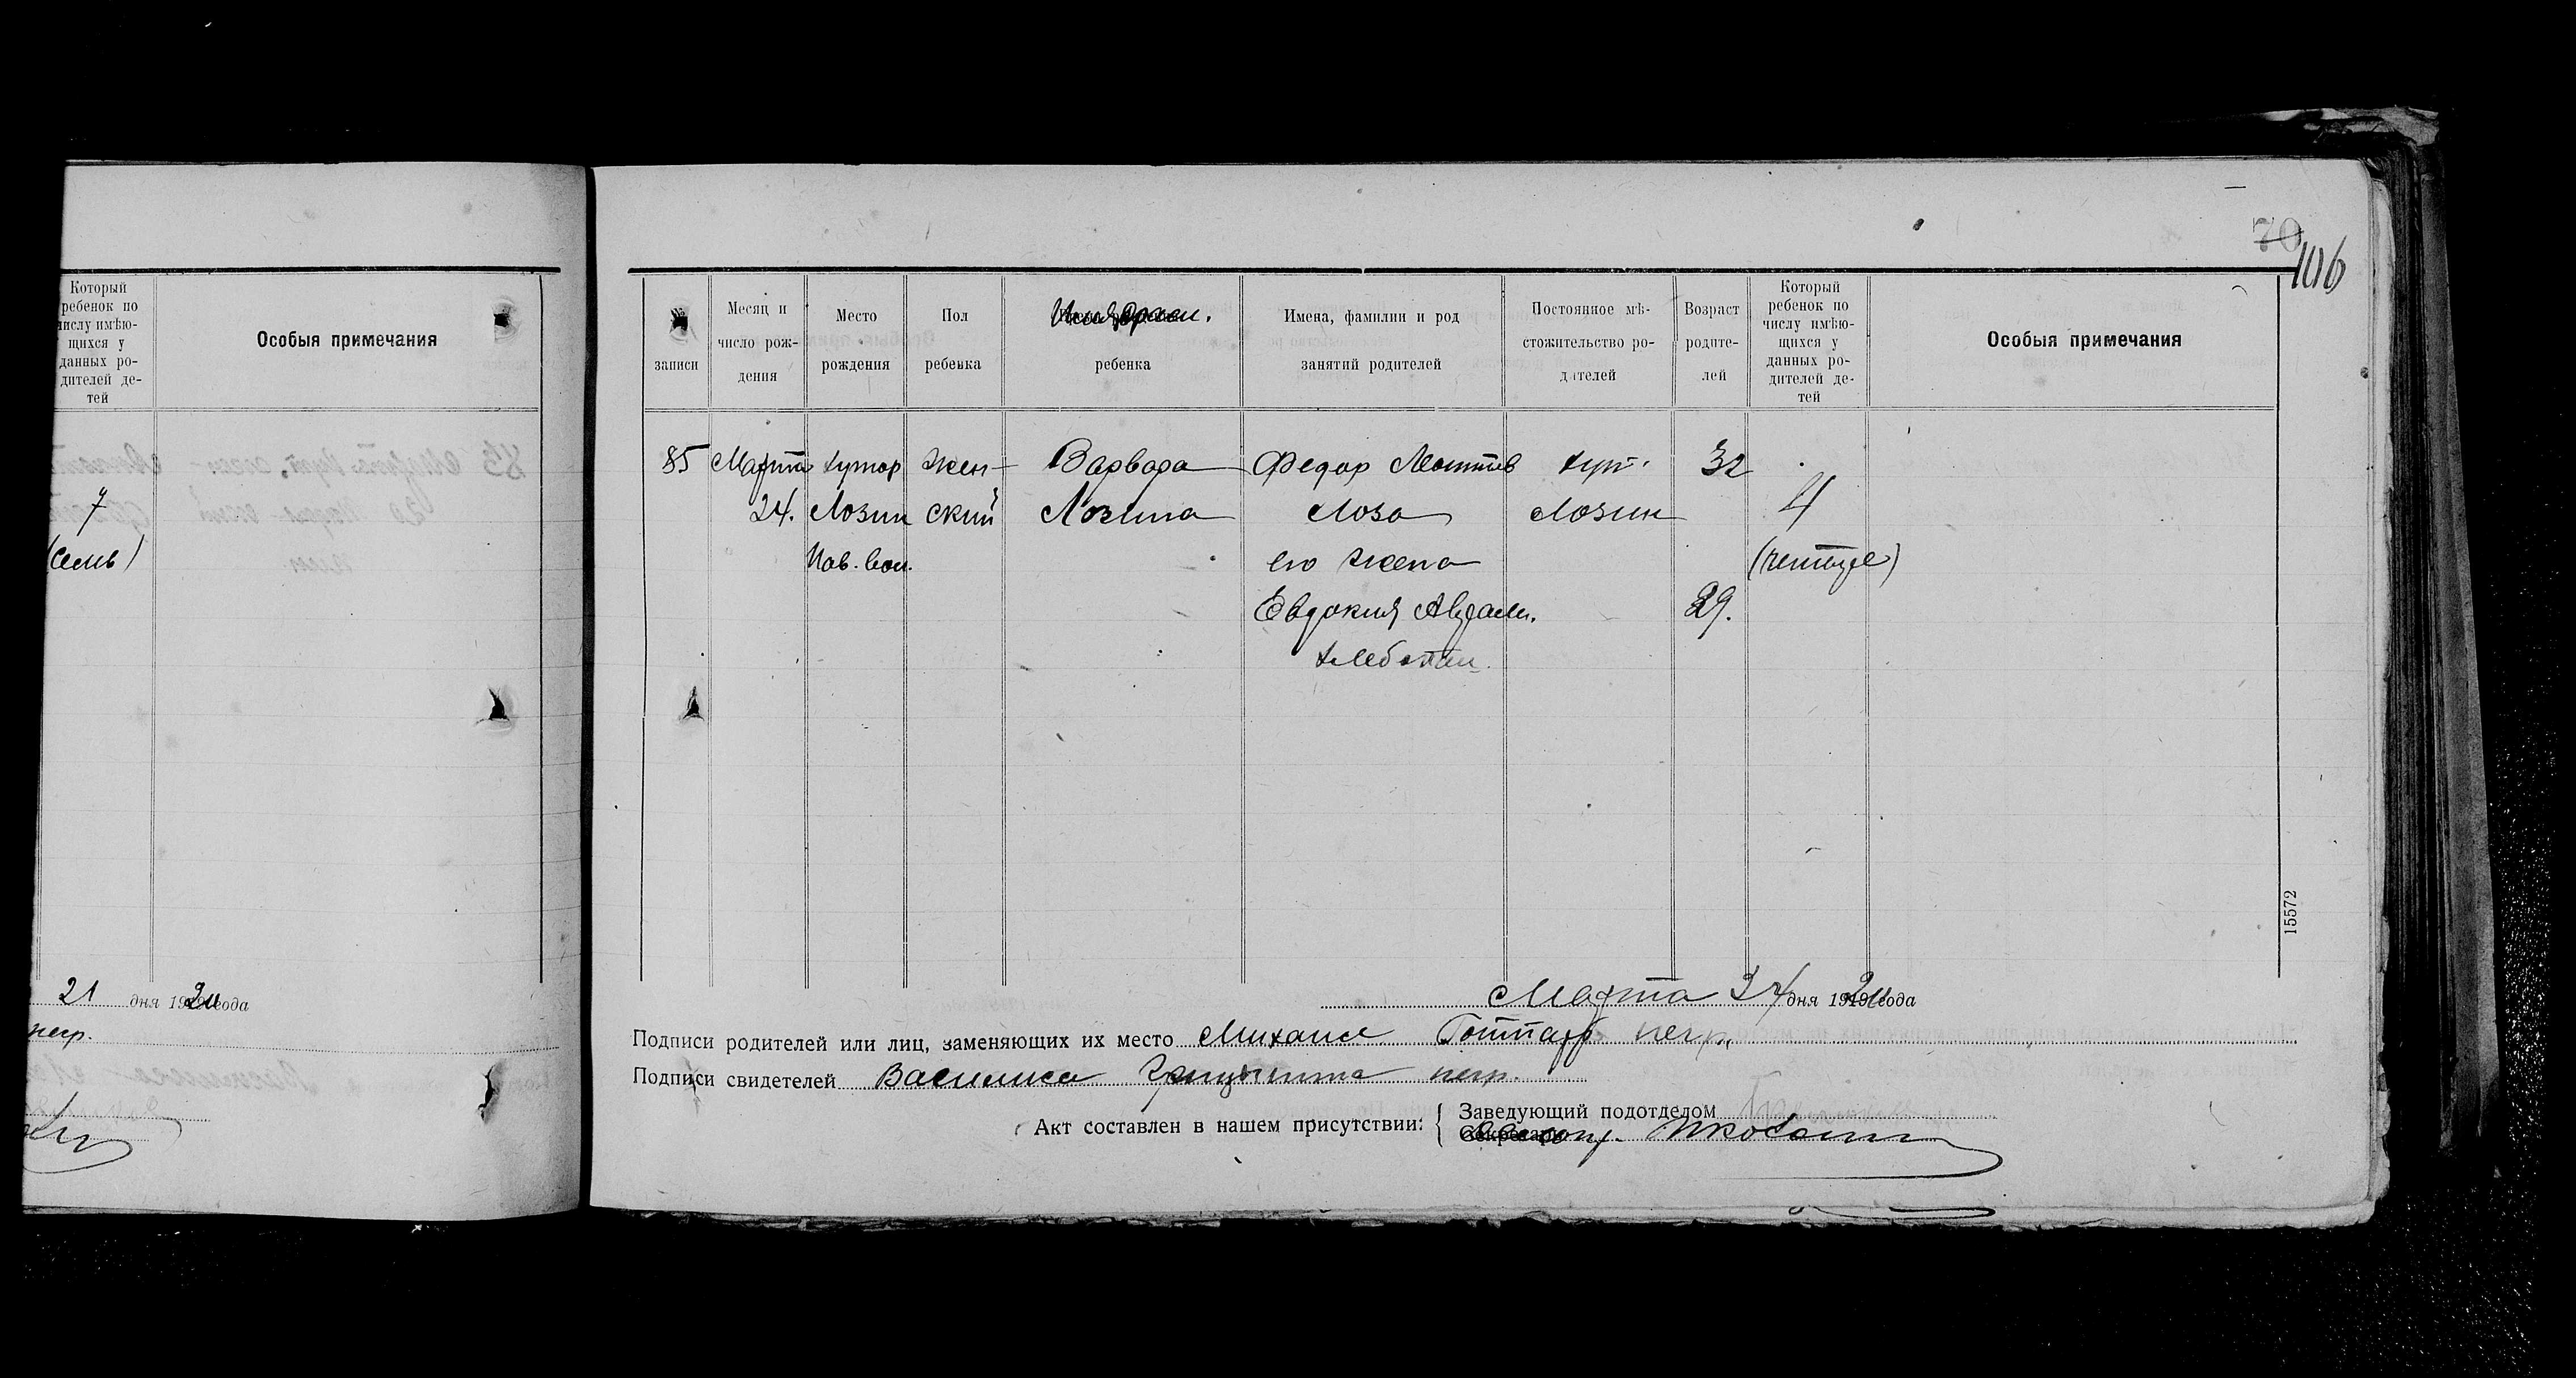 Который
ребенок по
числу имѣю-
щихся у
данных ро-
дителей де-
тей
Особыя примечания
7
(семь)
21 дня 1920 года
негр.
70
106
записи
Месяц и
число рож-
дения
Место
рождения
Пол
ребенка
Имя и фам.
ребенка
Имена, фамилии и род
занятий родителей
Постоянное мѣ-
стожительство ро-
дителей
Возраст
родите-
лей
Который
ребенок по
числу имѣю-
щихся у
данных ро-
дителей де-
тей
Особыя примечания
85 Марта хутор жен- Варвара Федор Моттов хут. 32
24. Лозин ский Лозина Лоза Лозин 4
Пав. вол. его жена (четыре)
Евдокия Авраам. 29.
хлебопаш.
15572
Марта 24 дня 1920 года
Подписи родителей или лиц, заменяющих их место Михаил негр.
Подписи свидетелей Василиса негр.
Акт составлен в нашем присутствии:
Заведующий подотделом
Секретарь